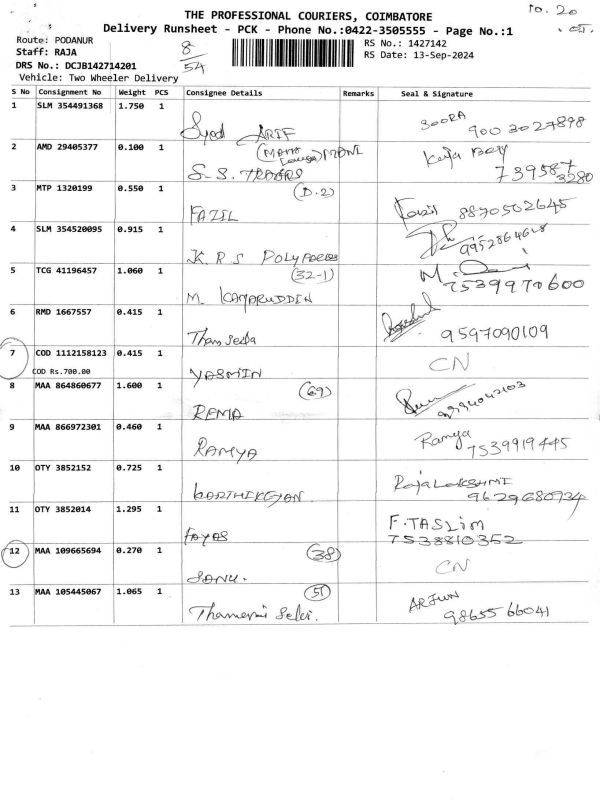 10.20
THE PROFESSIONAL COURIERS, COIMBATORE
Delivery Runsheet - PCK - Phone No.:0422-3505555 - Page No.:1
Route: PODANUR
Staff: RAJA
DRS No.: DCJB142714201
Vehicle: Two Wheeler Delivery
8
54
RS No.: 1427142
RS Date: 13-Sep-2024
S No Consignment No Weight PCS Consignee Details Remarks Seal & Signature
1 SLM 354491368 1.750 1 Syed ARIF SOORA 9003027898
2 AMD 29405377 0.100 1 S.S. TRADERS MANI Keja Bay 7395873280
3 MTP 1320199 0.550 1 FAZIL (D.2) Fazil 8870502645
4 SLM 354520095 0.915 1 K.R.S POLY 9952864618
5 TCG 41196457 1.060 1 M. KAMARUDDIN (32-1) 7539970600
6 RMD 1667557 0.415 1 9597090109
7 COD 1112158123 0.415 1 YASMIN CN
COD Rs.700.00
8 MAA 864860677 1.600 1 REMA (69)
9 MAA 866972301 0.460 1 RAMYA Ramya 7539919445
10 OTY 3852152 0.725 1 KARTHIKEYAN. RajaLAKSHMI 9629680934
11 OTY 3852014 1.295 1 FAYAS F.TASLIM 7538810352
12 MAA 109665694 0.270 1 SANU. (38) CN
13 MAA 105445067 1.065 1 (51) ARJUN 9865566041